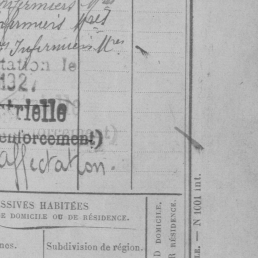 Infirmiers Mres
Infirmiers Mres
Infirmiers Mres
tation le
1927
trielle
enforcement)
affectation.
SSIVES HABITÉES
E DOMICILE OU DE RÉSIDENCE.
nes.
Subdivision de région.
D DOMICILE
R RÉSIDENCE.
LE. — N 1001 int.